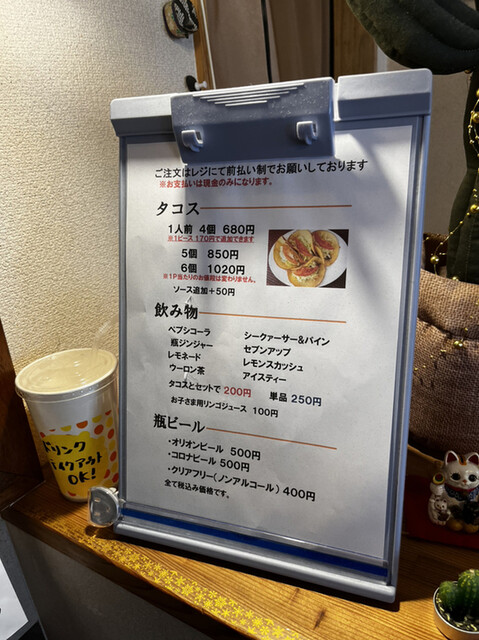 ご注文はレジにて前払い制でお願いしております
※お支払いは現金のみになります。
タコス
1人前 4個 680円
※1ピース 170円で追加できます
5個 850円
6個 1020円
※1P当たりのお値段は変わりません。
ソース追加+50円
飲み物
ペプシコーラ
瓶ジンジャー
レモネード
ウーロン茶
シークァーサー&パイン
セブンアップ
レモンスカッシュ
アイスティー
タコスとセットで 200円 単品 250円
お子さま用リンゴジュース 100円
瓶ビール
・オリオンビール 500円
・コロナビール 500円
・クリアフリー(ノンアルコール) 400円
全て税込み価格です。
ドリンク
テイクアウト
OK!